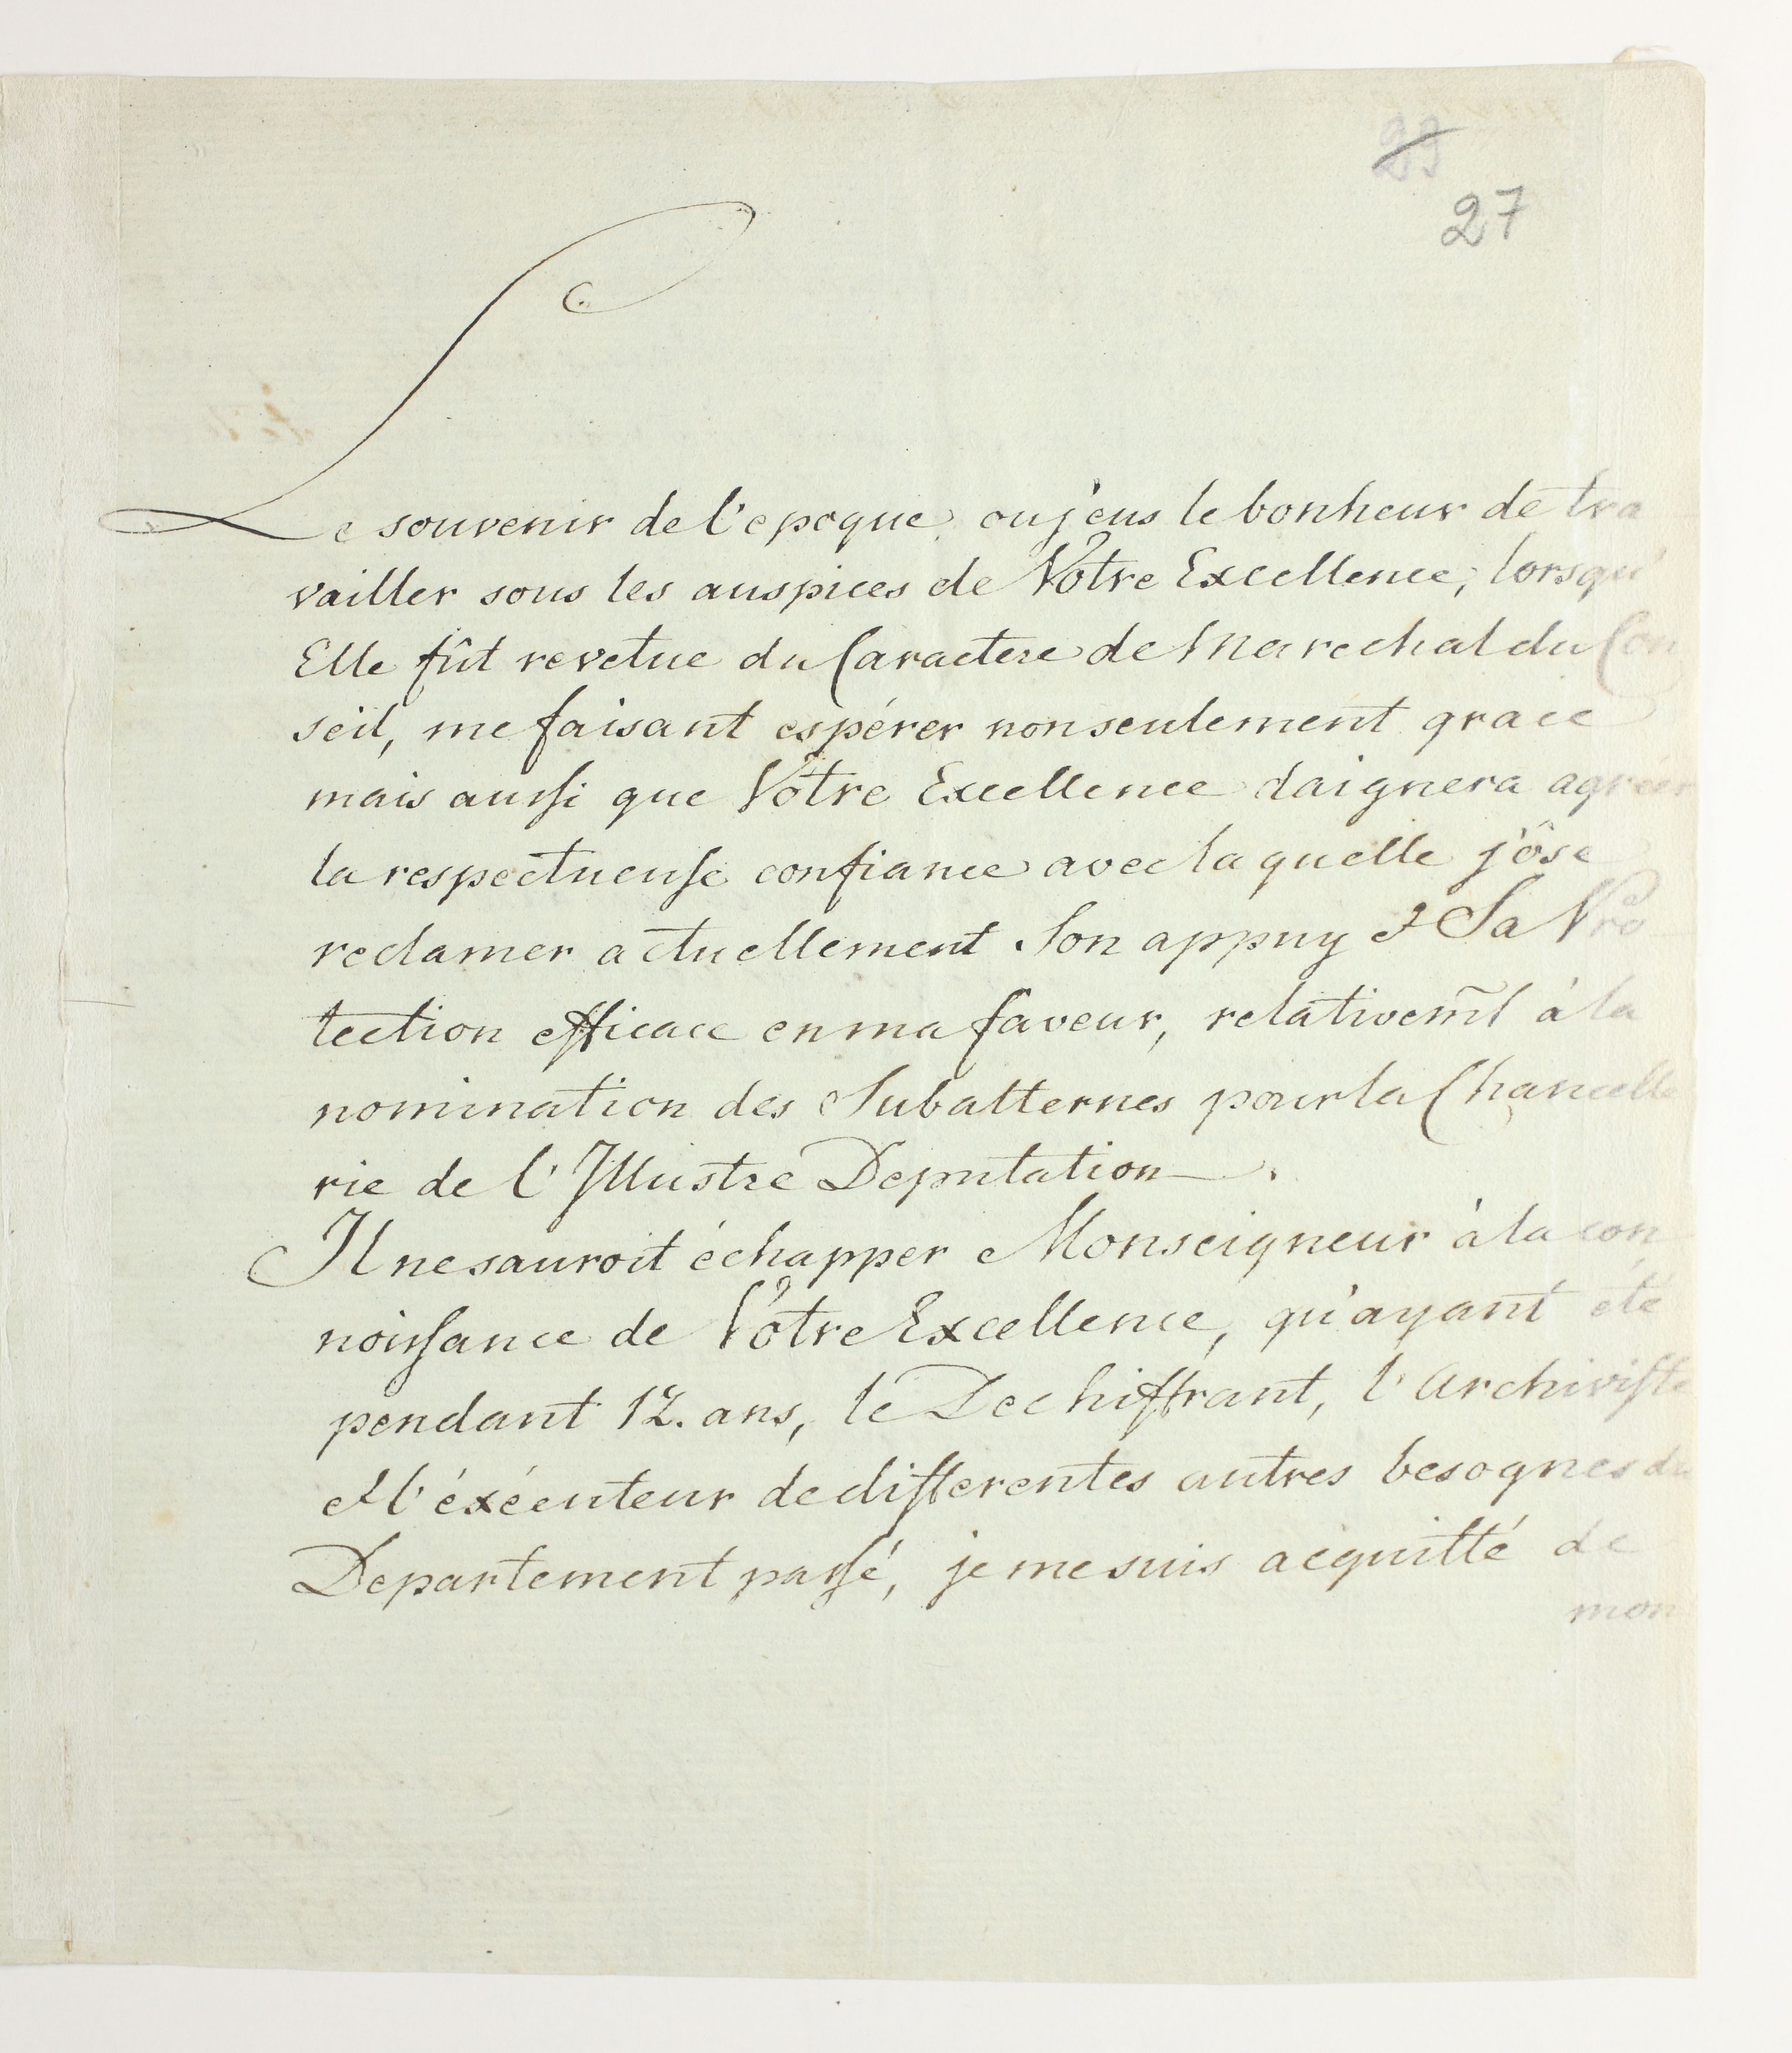 23
27
Le souvenir de l'epoque ou j'eus le bonheur de tra
vailler sous les auspices de Votre Excellence, lorsqu'
Elle fût revetue du Caractere de Marechal du Con
seil, me faisant espérer non seulement grace
mais aussi que Vôtre Excellence daignera agréer
la respectueuse confiance avec la quelle j'ôse
reclamer actuellement Son appuy & Sa Pro
tection efficace en ma faveur, relativem̃t à la
nomination des Subalternes pour la Chancelle
rie de l'Illustre Deputation.
Il ne sauroit échapper Monseigneur à la con
noissance de Vôtre Excellence, qu'ayant été
pendant 12. ans, le Dechiffrant, l'Archiviste
et l'éxécuteur de differentes autres besognes du
Departement passé, je me suis acquitté de
mon